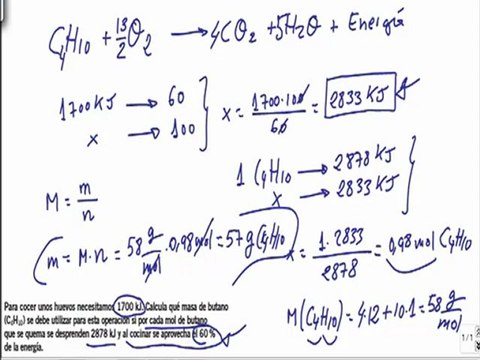 C₄H₁₀ + 13/2 O₂ → 4CO₂ + 5H₂O + Energía
1700 KJ → 60
x → 100
x = 1700·100/60 = 2833 KJ
1 C₄H₁₀ → 2878 KJ
x → 2833 KJ
M = m/n
m = M·n = 58 g/mol · 0,98 mol = 57 g C₄H₁₀
x = 1·2833/2878 = 0,98 mol C₄H₁₀
M(C₄H₁₀) = 4·12 + 10·1 = 58 g/mol
Para cocer unos huevos necesitamos 1700 kJ. Calcula qué masa de butano
(C₄H₁₀) se debe utilizar para esta operación si por cada mol de butano
que se quema se desprenden 2878 kJ y al cocinar se aprovecha el 60 %
de la energía.
1/1